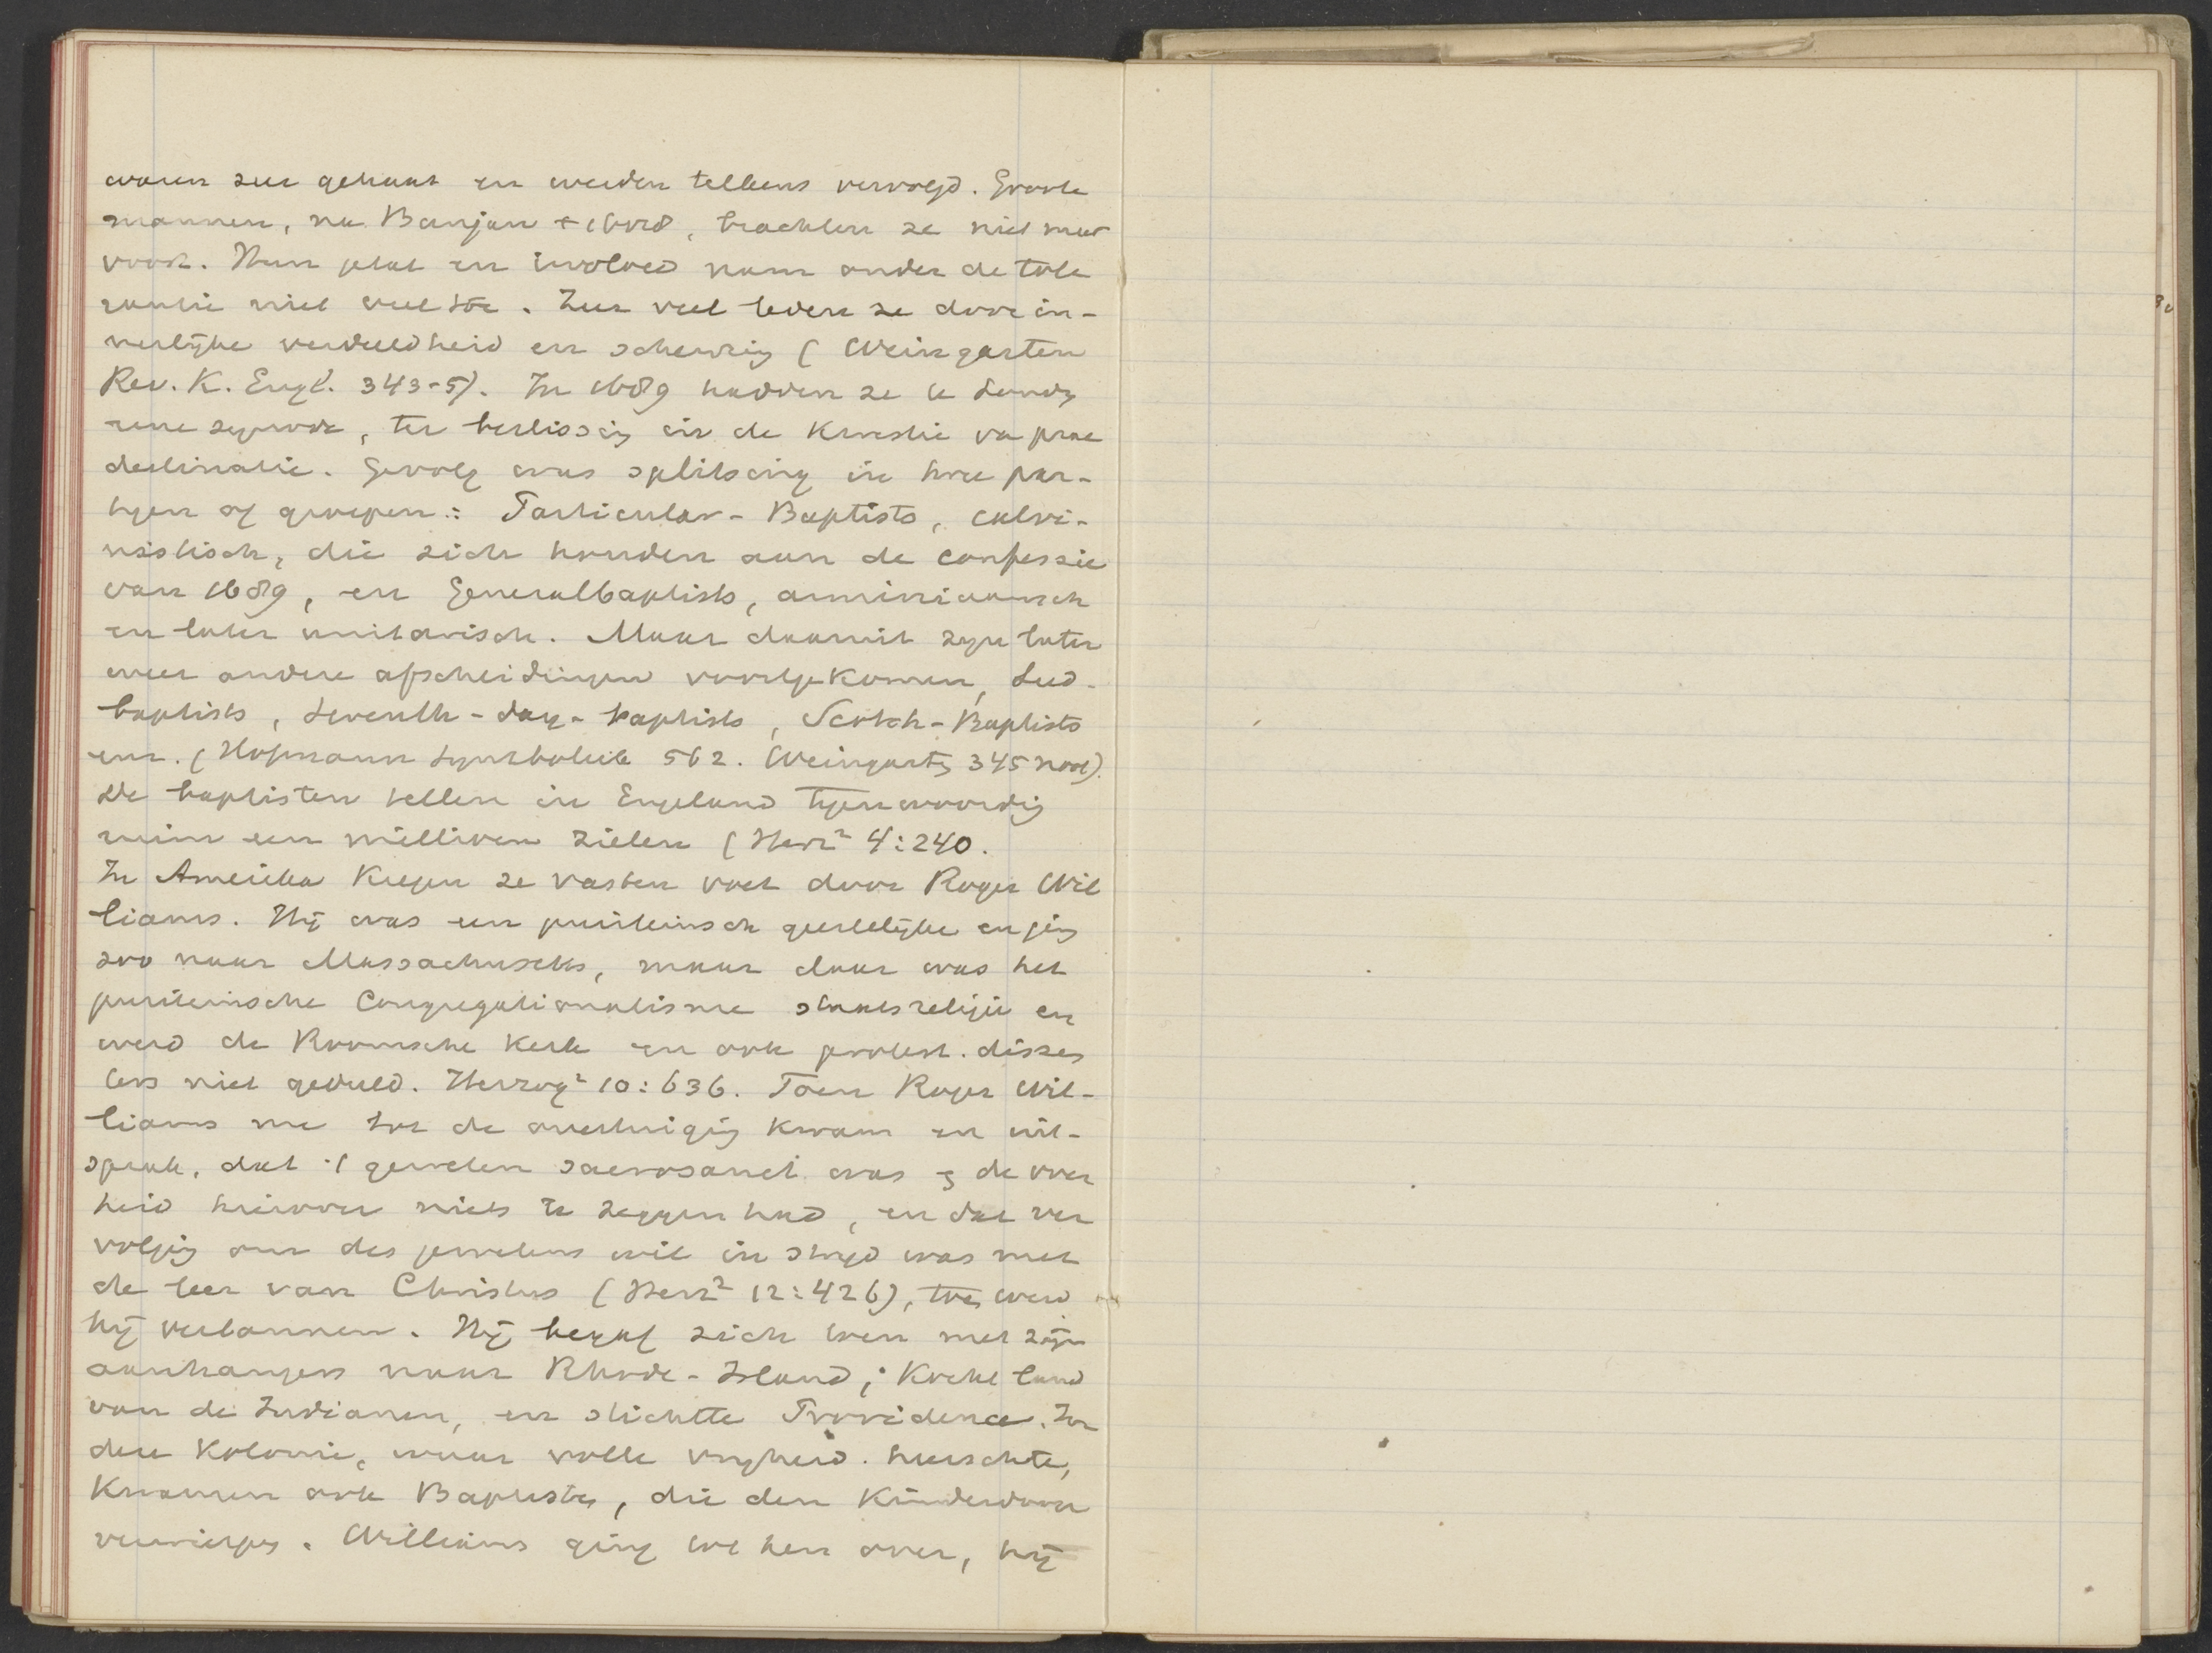 waren zeer gehaat en werden telkens vervolgd. Groote
mannen, na Bunjan + 1688, brachten ze niet meer
voort. Hun getal en invloed nam onder de tole
rantie niet veel toe. Zeer veel leden ze door in-
nerlijke verdeeldheid en scheuring (Weingarten
Rev. K. Engl. 343-5). In 1689 hadden ze te Londen
eene synode, ter beslissing in de kwestie van prae
destinatie. Gevolg was splitsing in twee par-
tijen of groepen: Particular-Baptists, calvi-
nistisch, die zich houden aan de confessie
van 1689, en Generalbaptists, arminiaansch
en later unitarisch. Maar daaruit zijn later
weer andere afscheidingen voortgekomen,
baptists, Seventh-day-baptists, Scotch-Baptists
enz. (Hofmann Symboliek 562. Weingarten 345 noot).
De baptisten tellen in Engeland tegenwoordig
ruim een millioen zielen (Herz² 4:240.
In Amerika kregen ze vasten voet door Roger Wil
liams. Hij was een puriteinsch geestelijke en ging
zoo naar Massachusetts, maar daar was het
puriteinsche Congregationalisme staatsreligie en
werd de Roomsche kerk en ook protest. dissen
ters niet geduld. Herzog² 10:636. Toen Roger Wil-
liams nu tot de overtuiging kwam en uit-
sprak, dat 't geweten sacrosanct was en de over
heid hierover niets te zeggen had, en dat ver
volging om des gewetens wil in strijd was met
de leer van Christus (Herz² 12:426), toen werd
hij verbannen. Hij begaf zich toen met zijn
aanhangers naar Rhode-Island; kocht land
van de Indianen, en stichtte Providence. In
deze Kolonie, waar volle vrijheid heerschte,
kwamen ook Baptisten, die den kinderdoop
verwierpen. Williams ging tot hen over, hij